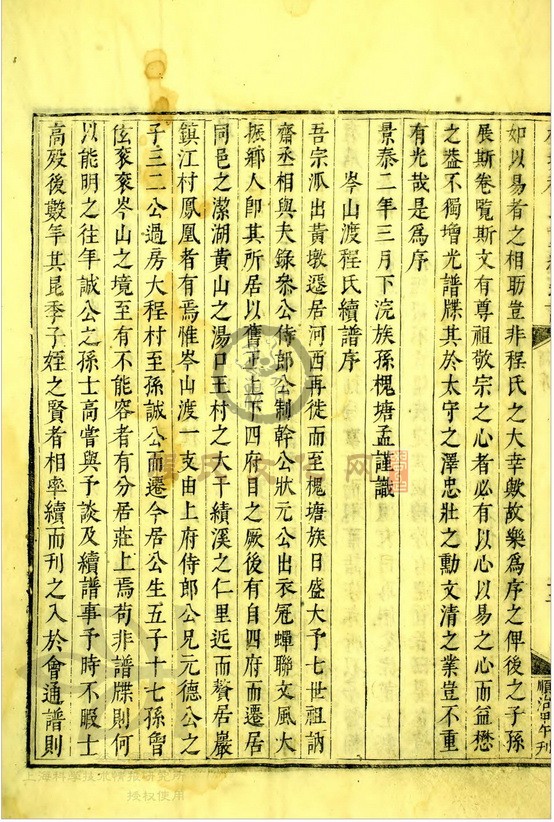 如以易者之相助豈非程氏之大幸歟故樂爲序之俾後之子孫
展斯卷覧斯文有尊祖敬宗之心者必有以心以易之心而益懋
之葢不獨増光譜牒其於太守之澤忠壯之勳文清之業豈不重
有光哉是爲序
景泰二年三月下浣族孫槐塘孟謹識
岑山渡程氏續譜序
吾宗派出黃墩遷居河西再徙而至槐塘族日盛大予七世祖訥
齋丞相與夫錄叅公侍郎公制幹公狀元公出衣冠蟬聯文風大
振鄉人卽其所居以舊正上下四府目之厥後有自四府而遷居
同邑之潔湖黃山之湯口王村之大干績溪之仁里近而贅居巖
鎮江村鳳凰者有焉惟岑山渡一支由上府侍郎公兄元德公之
子三二公過房大程村至孫誠公而遷今居公生五子十七孫曾
伭衮衮岑山之境至有不能容者有分居莊上焉苟非譜牒則何
以能明之往年誠公之孫士高嘗與予談及續譜事予時不暇士
高歿後數年其昆季子姪之賢者相率續而刊之入於會通譜則
順治甲午刊
上海科学技术情报研究所
授权使用